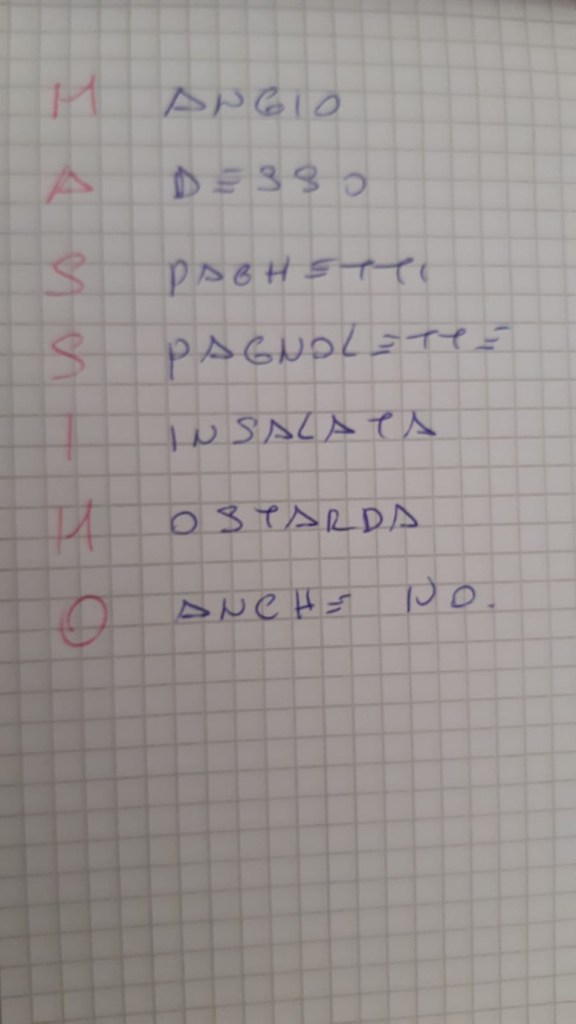 M ANGIO
A DESSO
S PAGHETTI
S PAGNOLETTE
I INSALATA
M OSTARDA
O ANCHE NO.